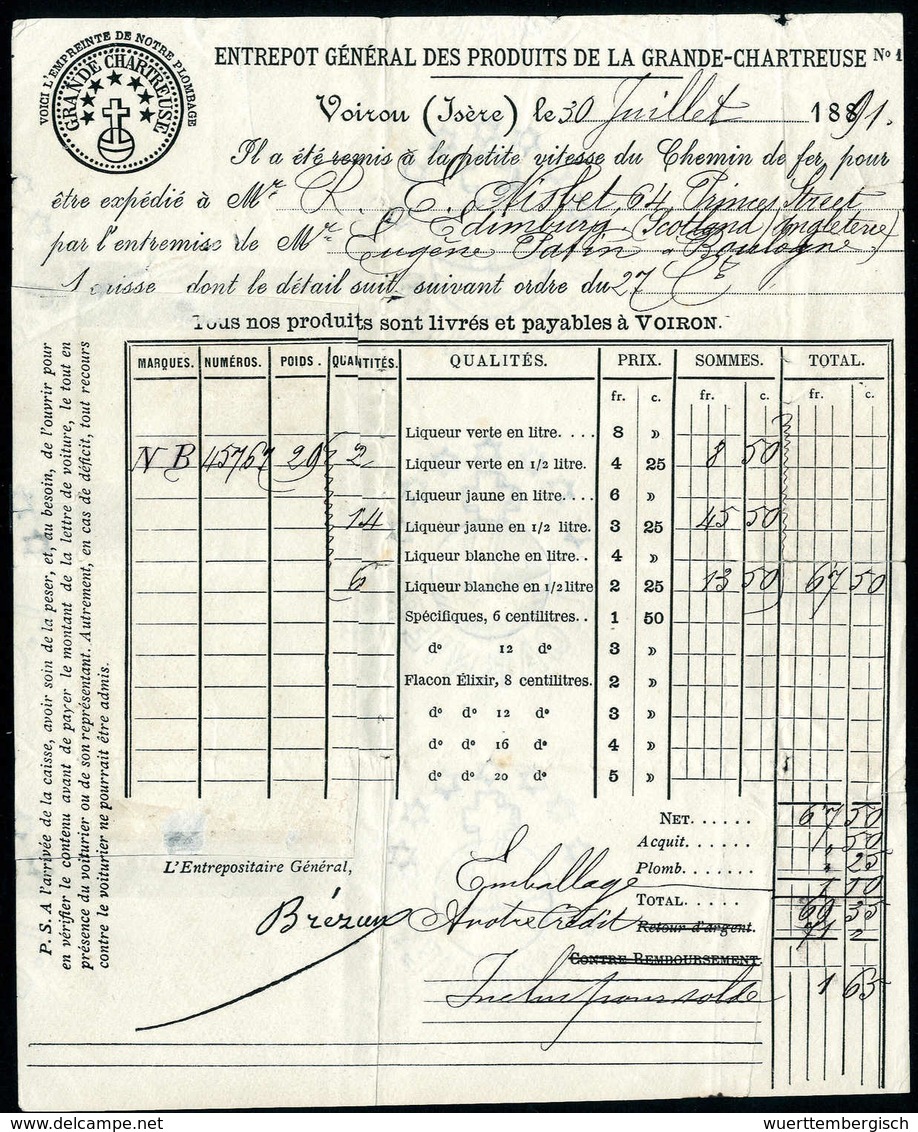 VOICI L'EMPREINTE DE NOTRE PLOMBAGE
GRANDE CHARTREUSE
ENTREPOT GÉNÉRAL DES PRODUITS DE LA GRANDE-CHARTREUSE No 1
Voiron (Isère) le 30 Juillet 1891.
Il a été remis à la petite vitesse du Chemin de fer, pour
être expédié à Mr R. E. Nisbet, 64 Princes Street
Edimburg Scotland (Ingleterre)
par l'entremise de Mr Eugène Patin à Boulogne
1 caisse dont le détail suit, suivant ordre du 27 Ct
Tous nos produits sont livrés et payables à VOIRON.
MARQUES. NUMÉROS. POIDS. QUANTITÉS. QUALITÉS. PRIX. SOMMES. TOTAL.
fr. c. fr. c. fr. c.
Liqueur verte en litre.... 8 »
NB 45767 26 2 Liqueur verte en 1/2 litre. 4 25 8 50
Liqueur jaune en litre... 6 »
14 Liqueur jaune en 1/2 litre. 3 25 45 50
Liqueur blanche en litre.. 4 »
6 Liqueur blanche en 1/2 litre 2 25 13 50 67 50
Spécifiques, 6 centilitres.. 1 50
do 12 do 3 »
Flacon Élixir, 8 centilitres. 2 »
do do 12 do 3 »
do do 16 do 4 »
do do 20 do 5 »
NET...... 67 50
Acquit...... 1 50
Plomb...... 25
Emballage 1 10
TOTAL..... 69 35
L'Entrepositaire Général,
Brézun
A votre Crédit Retour d'argent. 71 2
CONTRE REMBOURSEMENT
Inclus pour solde 1 65
P. S. A l'arrivée de la caisse, avoir soin de la peser, et, au besoin, de l'ouvrir pour
en vérifier le contenu avant de payer le montant de la lettre de voiture, le tout en
présence du voiturier ou de son représentant. Autrement, en cas de déficit, tout recours
contre le voiturier ne pourrait être admis.
www.wuerttembergisch